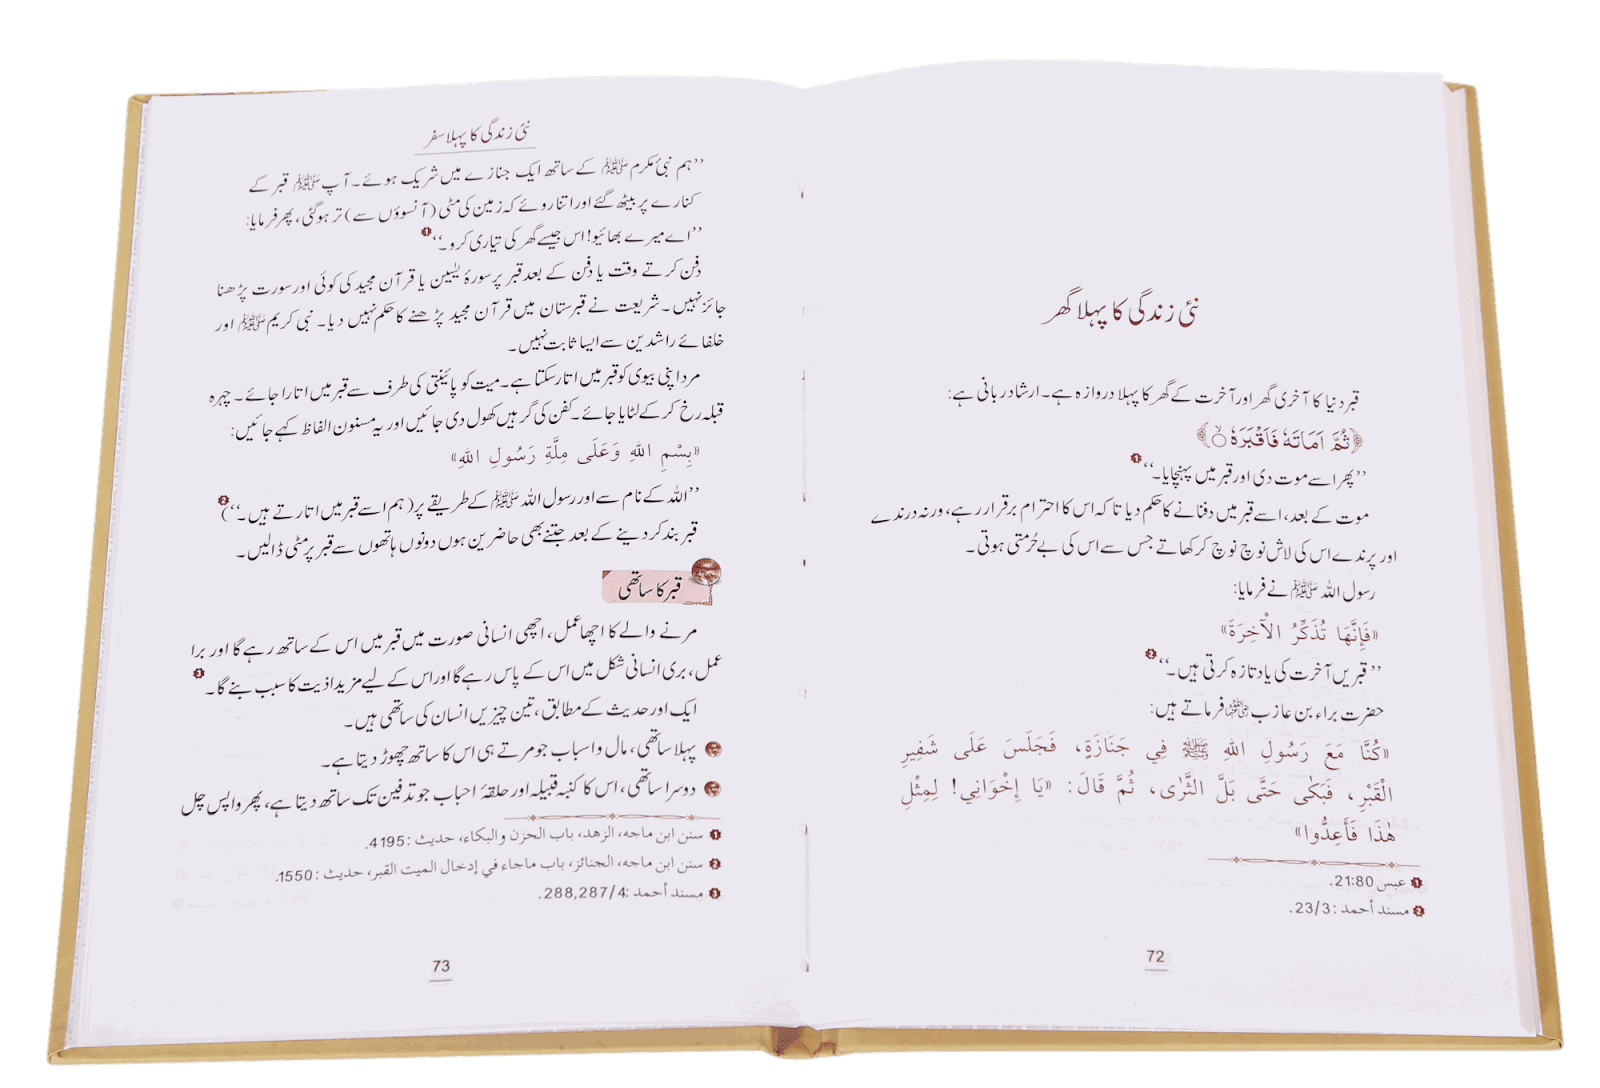 نئی زندگی کا پہلا گھر
قبر دنیا کا آخری گھر اور آخرت کے گھر کا پہلا دروازہ ہے۔ ارشاد ربانی ہے:
﴿ثُمَّ اَمَاتَهٗ فَاَقْبَرَهٗ ۙ﴾
’’پھر اسے موت دی اور قبر میں پہنچایا۔‘‘ ❶
موت کے بعد، اسے قبر میں دفنانے کا حکم دیا تاکہ اس کا احترام برقرار رہے، ورنہ درندے
اور پرندے اس کی لاش نوچ نوچ کر کھاتے جس سے اس کی بے حُرمتی ہوتی۔
رسول اللہ ﷺ نے فرمایا:
«فَإِنَّهَا تُذَكِّرُ الْآخِرَةَ»
’’قبریں آخرت کی یاد تازہ کرتی ہیں۔‘‘ ❷
حضرت براء بن عازب رضی اللہ عنہما فرماتے ہیں:
«كُنَّا مَعَ رَسُولِ اللهِ ﷺ فِي جَنَازَةٍ، فَجَلَسَ عَلَى شَفِيرِ
الْقَبْرِ، فَبَكَى حَتَّى بَلَّ الثَّرَى، ثُمَّ قَالَ: «يَا إِخْوَانِي! لِمِثْلِ
هٰذَا فَأَعِدُّوا»
❶ عبس 21:80.
❷ مسند أحمد : 23/3.
72
نئی زندگی کا پہلا سفر
’’ہم نبیٔ مکرم ﷺ کے ساتھ ایک جنازے میں شریک ہوئے۔ آپ ﷺ قبر کے
کنارے پر بیٹھ گئے اور اتنا روئے کہ زمین کی مٹی (آنسوؤں سے) تر ہو گئی، پھر فرمایا:
’’اے میرے بھائیو! اس جیسے گھر کی تیاری کرو۔‘‘ ❶
دفن کرتے وقت یا دفن کے بعد قبر پر سورۂ یٰسین یا قرآن مجید کی کوئی اور سورت پڑھنا
جائز نہیں۔ شریعت نے قبرستان میں قرآن مجید پڑھنے کا حکم نہیں دیا۔ نبی کریم ﷺ اور
خلفائے راشدین سے ایسا ثابت نہیں۔
مرد اپنی بیوی کو قبر میں اتار سکتا ہے۔ میت کو پائینتی کی طرف سے قبر میں اتارا جائے۔ چہرہ
قبلہ رخ کر کے لٹایا جائے۔ کفن کی گرہیں کھول دی جائیں اور یہ مسنون الفاظ کہے جائیں:
«بِسْمِ اللهِ وَعَلَى مِلَّةِ رَسُولِ اللهِ»
’’اللہ کے نام سے اور رسول اللہ ﷺ کے طریقے پر (ہم اسے قبر میں اتارتے ہیں۔‘‘) ❷
قبر بند کر دینے کے بعد جتنے بھی حاضرین ہوں دونوں ہاتھوں سے قبر پر مٹی ڈالیں۔
قبر کا ساتھی
مرنے والے کا اچھا عمل، اچھی انسانی صورت میں قبر میں اس کے ساتھ رہے گا اور برا
عمل، بری انسانی شکل میں اس کے پاس رہے گا اور اس کے لیے مزید اذیت کا سبب بنے گا۔ ❸
ایک اور حدیث کے مطابق، تین چیزیں انسان کی ساتھی ہیں۔
پہلا ساتھی، مال و اسباب جو مرتے ہی اس کا ساتھ چھوڑ دیتا ہے۔
دوسرا ساتھی، اس کا کنبہ قبیلہ اور حلقۂ احباب جو تدفین تک ساتھ دیتا ہے، پھر واپس چل
❶ سنن ابن ماجه، الزهد، باب الحزن والبكاء، حديث : 4195.
❷ سنن ابن ماجه، الجنائز، باب ماجاء في إدخال الميت القبر، حديث : 1550.
❸ مسند أحمد : 288,287/4.
73